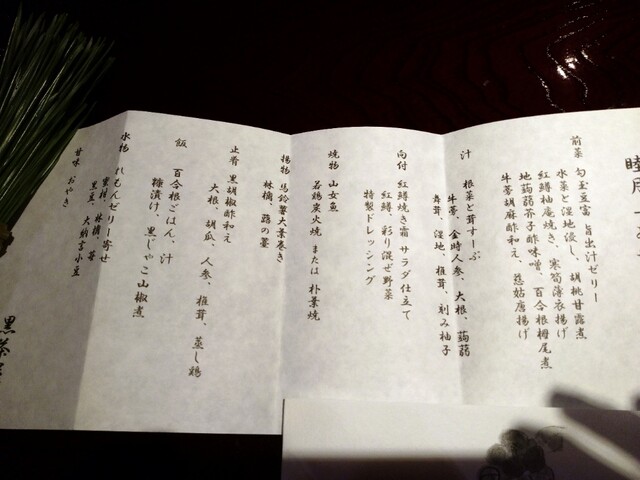 睦月
前菜 勾玉豆富 旨出汁ゼリー
水菜と湿地浸し、胡桃甘露煮
紅鱒柚庵焼き、寒筍薄衣揚げ
地蒟蒻芥子酢味噌、百合根栂尾煮
牛蒡胡麻酢和え 慈姑唐揚げ
汁 根菜と茸すーぷ
牛蒡、金時人参、大根、蒟蒻
舞茸、湿地、椎茸、刻み柚子
向付 紅鱒焼き霜 サラダ仕立て
紅鱒、彩り混ぜ野菜
特製ドレッシング
焼物 山女魚
若鶏炭火焼 または 朴葉焼
揚物 馬鈴薯大葉巻き
林檎、蕗の薹
止肴 黒胡椒酢和え
大根、胡瓜、人参、椎茸、蒸し鶏
飯 百合根ごはん、汁
糠漬け、黒じゃこ山椒煮
水物 れもんゼリー寄せ
蜜柑、林檎、苺
黒豆、大納言小豆
甘味 おやき
黒茶屋